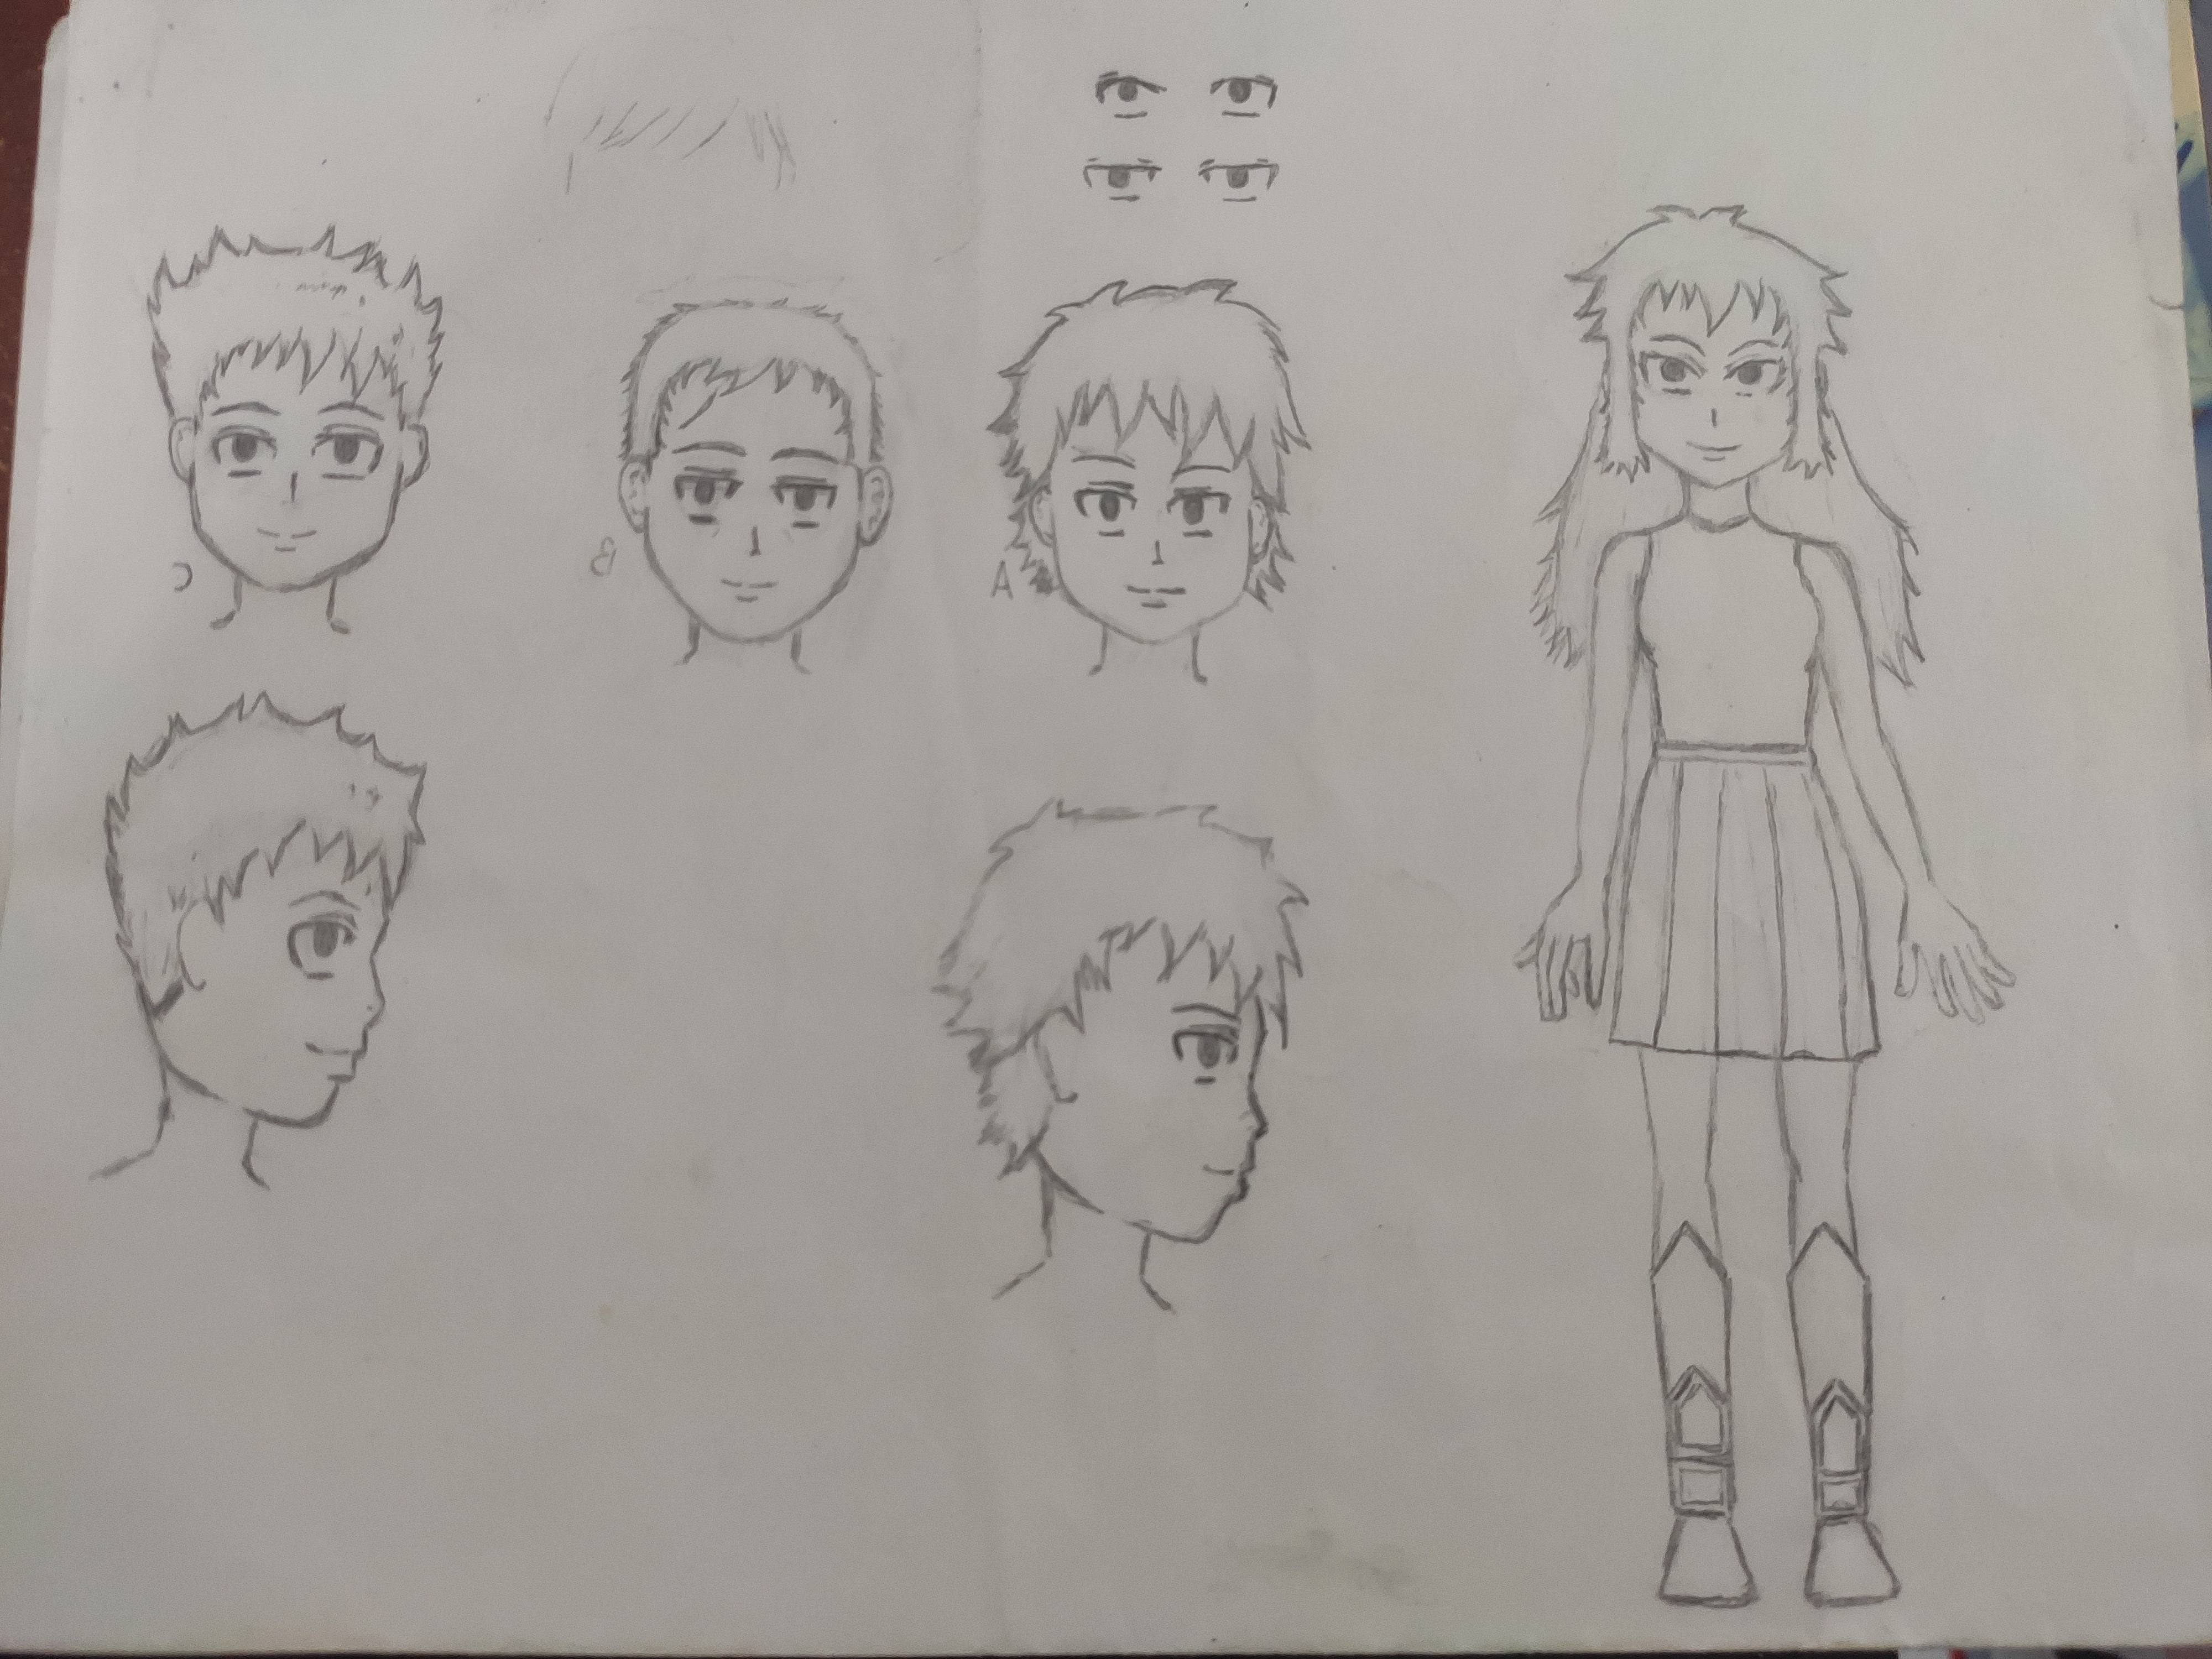 C
B
A